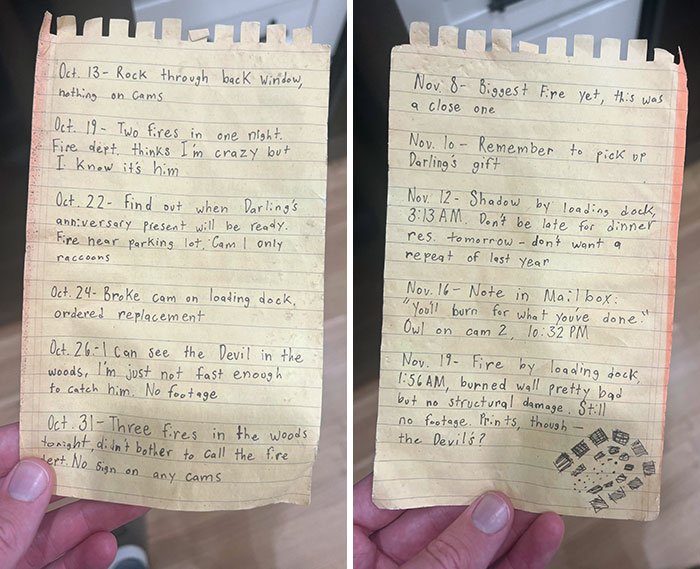 Oct. 13- Rock through back window,
nothing on cams
Oct. 19- Two fires in one night.
Fire dept. thinks I'm crazy but
I know it's him
Oct. 22- Find out when Darling's
anniversary present will be ready.
Fire near parking lot. Cam 1 only
raccoons
Oct. 24- Broke cam on loading dock,
ordered replacement
Oct. 26- I can see the Devil in the
woods, I'm just not fast enough
to catch him. No footage
Oct. 31- Three fires in the woods
tonight, didn't bother to call the fire
dept. No sign on any cams
Nov. 8- Biggest Fire yet, this was
a close one
Nov. 10- Remember to pick up
Darling's gift
Nov. 12- Shadow by loading dock,
3:13 AM. Don't be late for dinner
res. tomorrow - don't want a
repeat of last year
Nov. 16- Note in Mailbox:
"You'll burn for what you've done."
Owl on cam 2, 10:32 PM
Nov. 19- Fire by loading dock,
1:56 AM, burned wall pretty bad
but no structural damage. Still
no footage. Prints, though -
the Devil's?